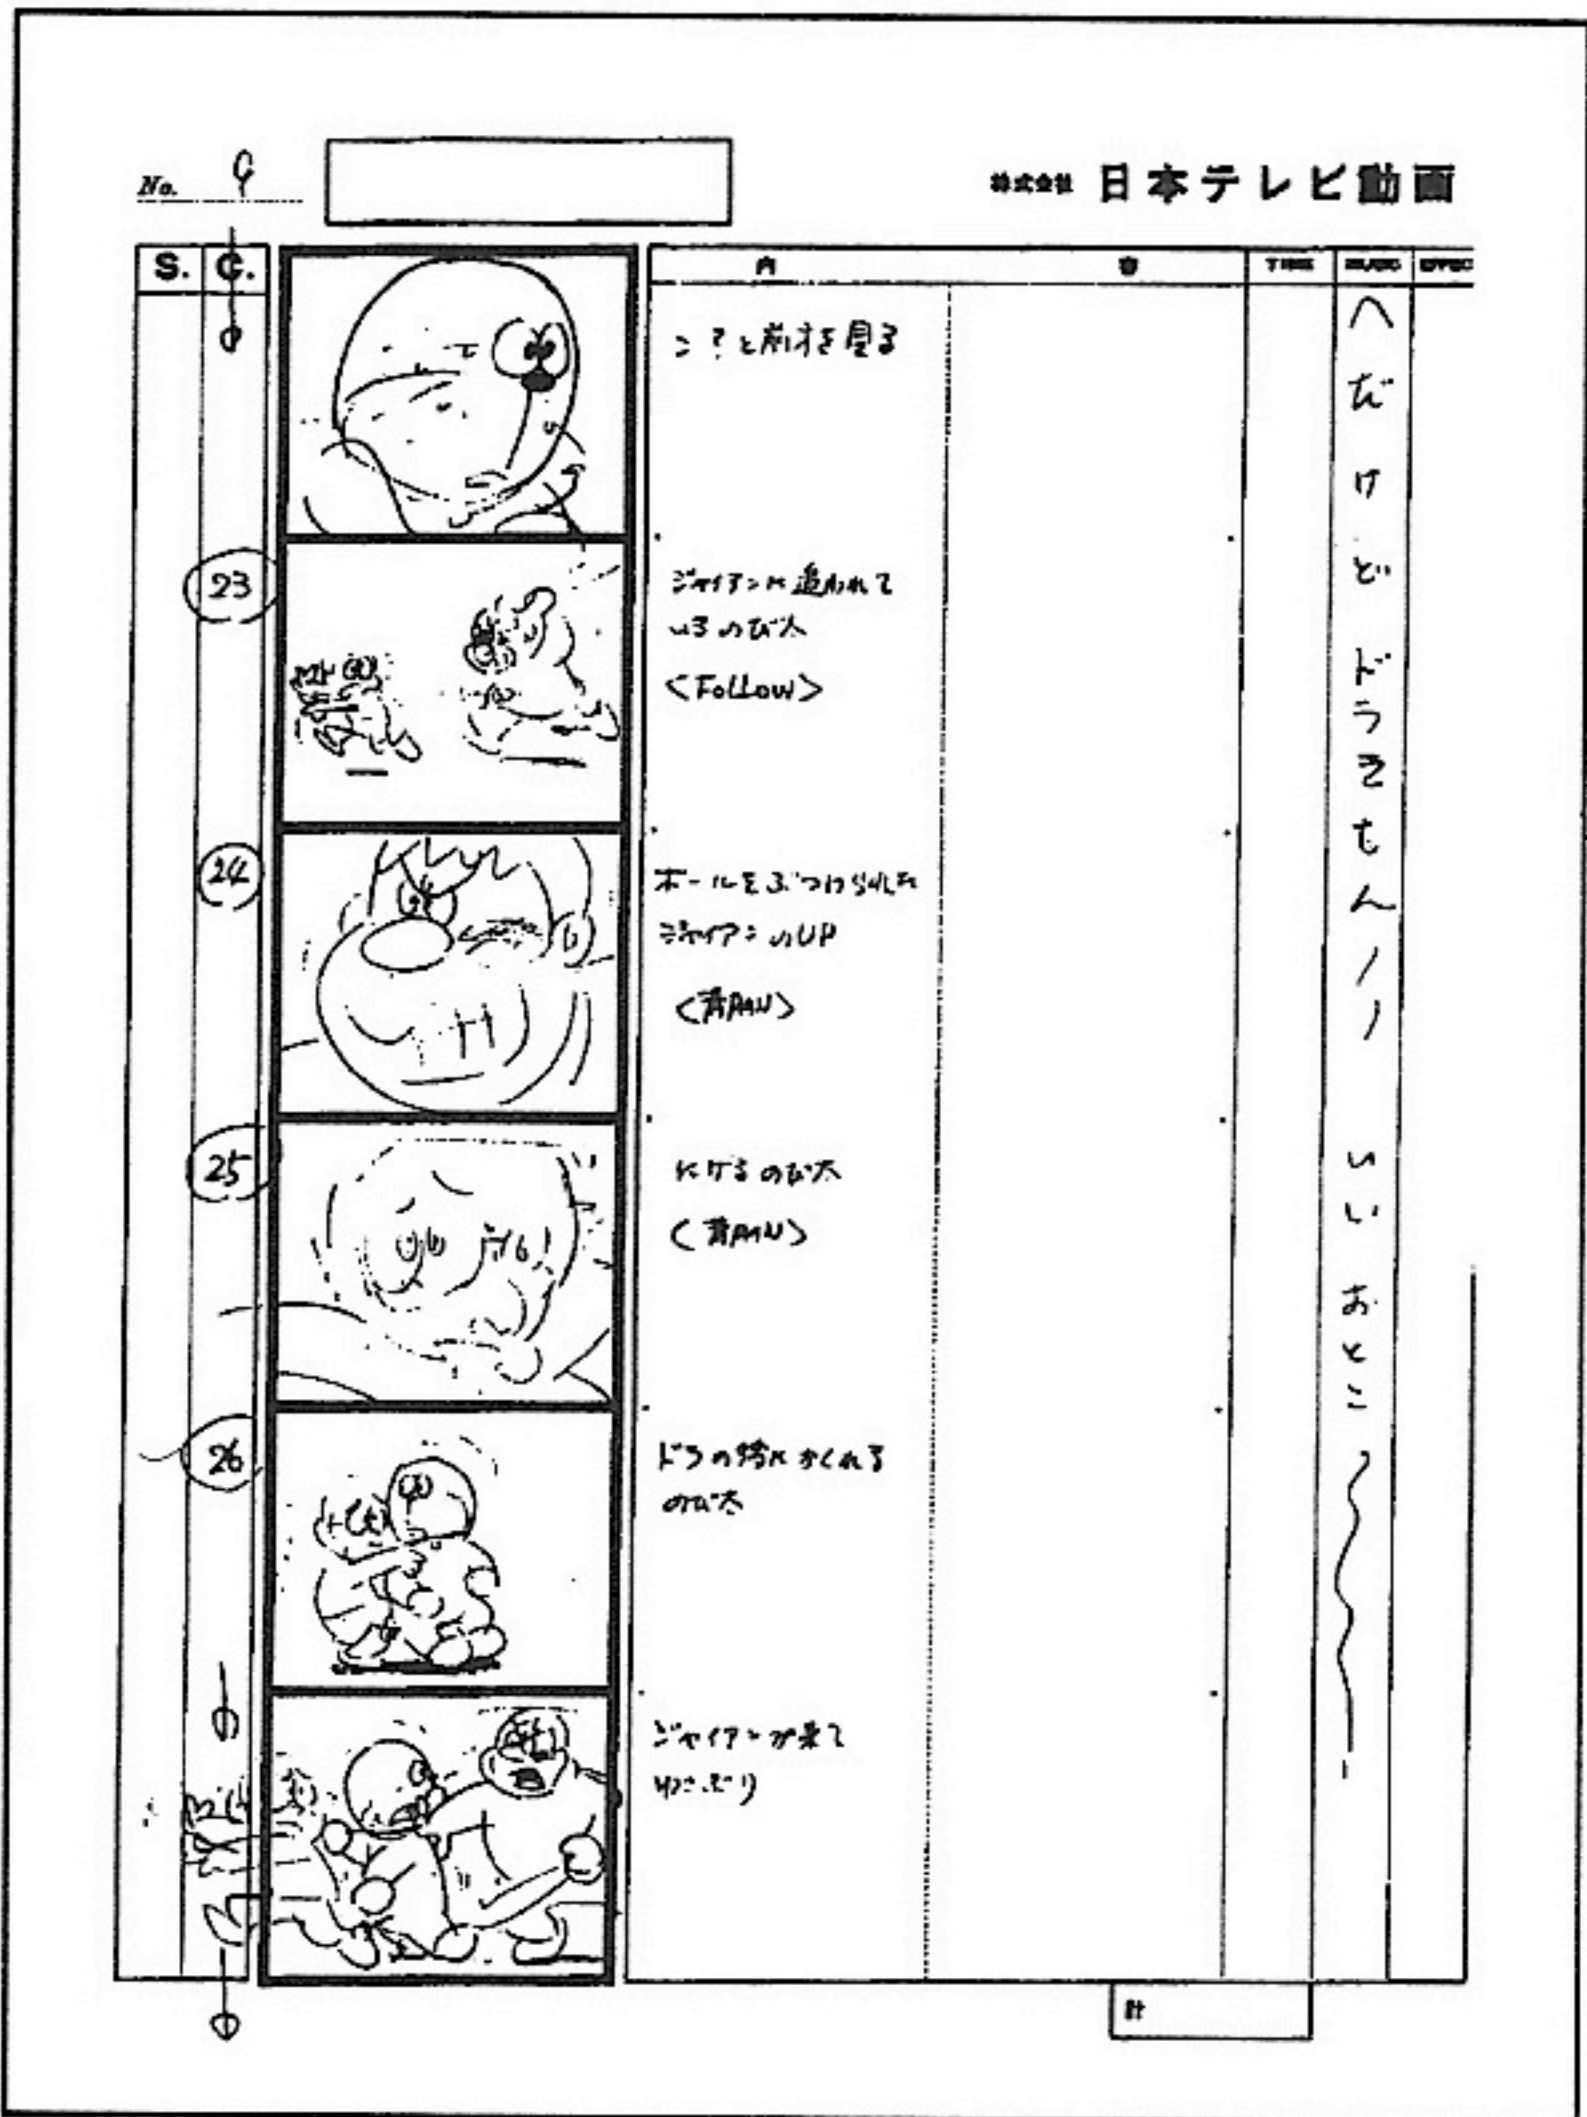 No. 9
株式会社 日本テレビ動画
S. C. 内 容 TIME MUSIC EFFEC
ン?と前方を見る
23
ジャイアンに追われて
いるのび太
<FOLLOW>
24
ボールをぶつけられた
ジャイアンのUP
<背PAN>
25
にげるのび太
<背PAN>
26
ドラの特にかくれる
のび太
ジャイアンが来て
へだけどドラえもんノノ いいおとこ
計